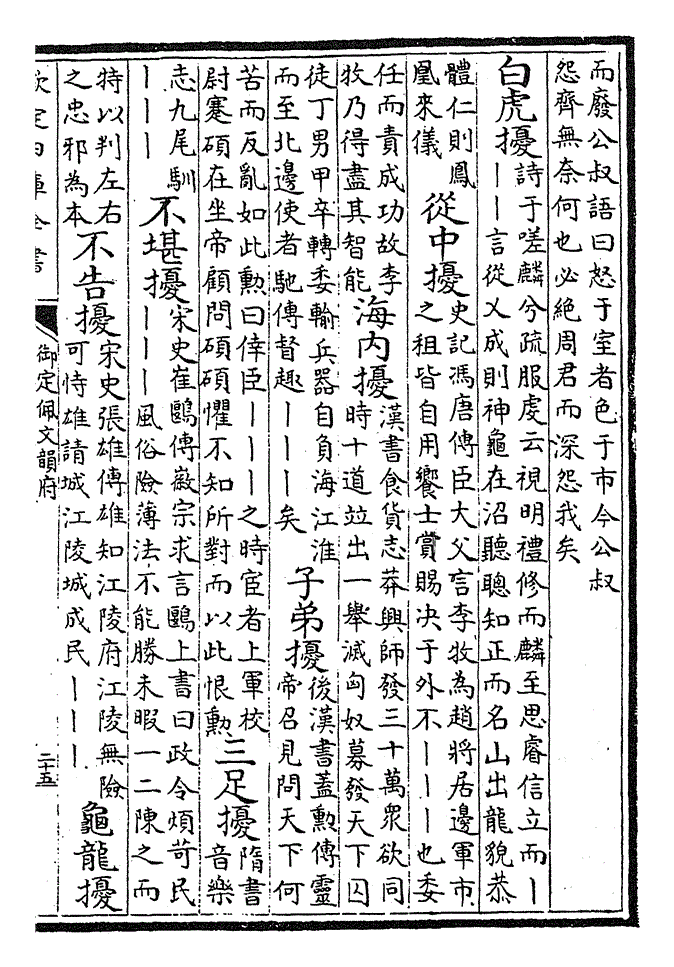 而廢公叔語曰怒于室者色于市今公叔
怨齊無奈何也必絶周君而深怨我矣
白虎擾
詩于嗟麟兮疏服虔云視明禮修而麟至思睿信立而｜
｜｜言從乂成則神龜在沼聽聰知正而名山出龍貌恭
體仁則鳳
凰來儀
從中擾
史記馮唐傳臣大父言李牧為趙將居邊軍市
之租皆自用饗士賞賜决于外不｜｜｜也委
任而責成功故李
牧乃得盡其智能
海内擾
漢書食貨志莽興師發三十萬衆欲同
時十道竝出一舉滅匈奴募發天下囚
徒丁男甲卒轉委輸兵器自負海江淮
而至北邊使者馳傳督趣｜｜｜矣
子弟擾
後漢書蓋勲傳靈
帝召見問天下何
苦而反亂如此勲曰倖臣｜｜｜之時宦者上軍校
尉蹇碩在坐帝顧問碩碩懼不知所對而以此恨勲
三足擾
隋書
音樂
志九尾馴
｜｜｜
不堪擾
宋史崔鶠傳徽宗求言鶠上書曰政令煩苛民
｜｜｜風俗險薄法不能勝未暇一二陳之而
特以判左右
之忠邪為本
不告擾
宋史張雄傳雄知江陵府江陵無險
可恃雄請城江陵城成民｜｜｜
龜龍擾
欽定四庫全書
御定佩文韻府
二十五